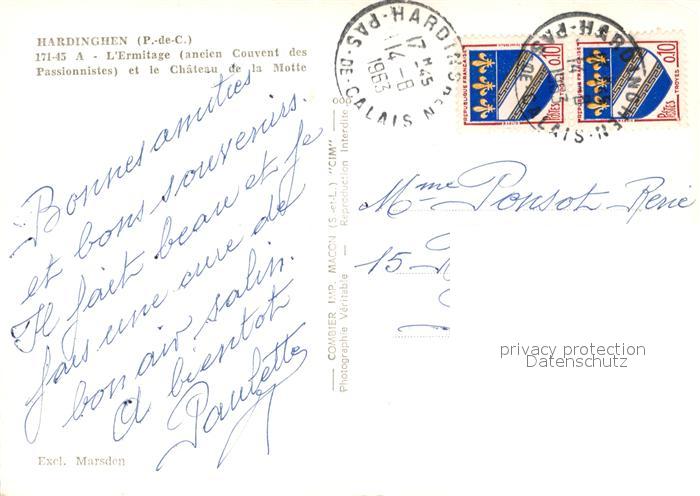 HARDINGHEN (P.-de-C.)
171-45 A - L'Ermitage (ancien Couvent des
Passionnistes) et le Château de la Motte
Bonnes amities
et bons souvenirs.
Il fait beau et je
fais une cure de
bon air salin.
A bientot
Paulette
Excl. Marsden
COMBIER IMP. MACON (S.-et-L.) "CIM"
Photographie Véritable - Reproduction Interdite
HARDINGHEN
17 H 45
14-8
1963
PAS-DE-CALAIS
REPUBLIQUE FRANCAISE
0,10
POSTES
TROYES
REPUBLIQUE FRANCAISE
0,10
POSTES
TROYES
PAS-DE-CALAIS
Mme Ponsot René
15
privacy protection
Datenschutz